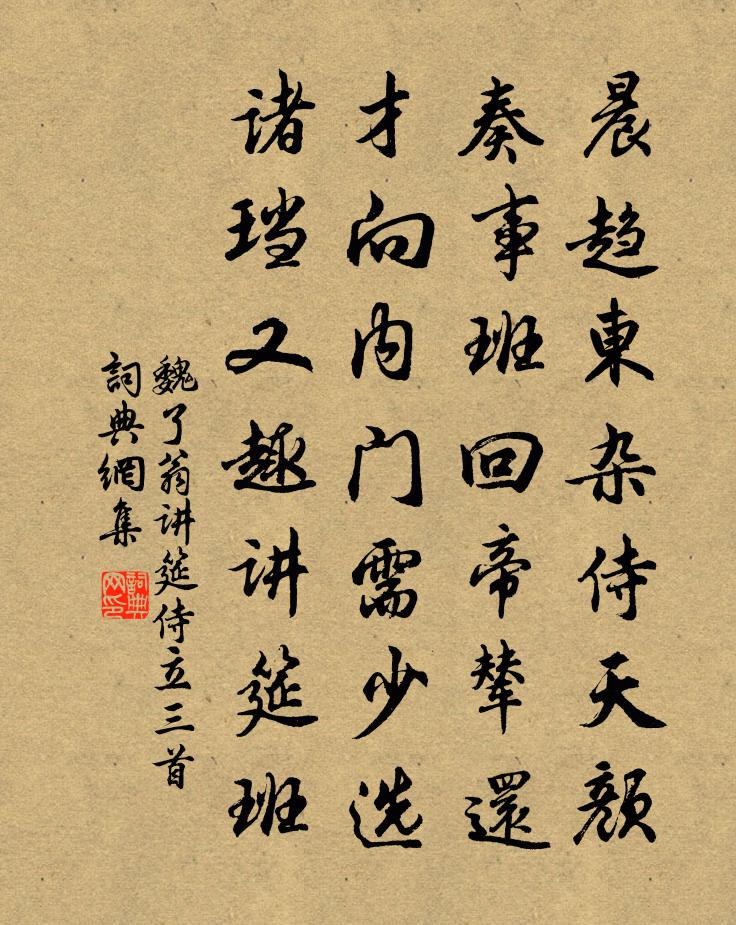 晨趋東朵侍天顏
奏事班回帝輦還
才向内门需少选
诸珰又趣讲筵班
魏了翁讲筵侍立三首
詞典網集
詞典网印